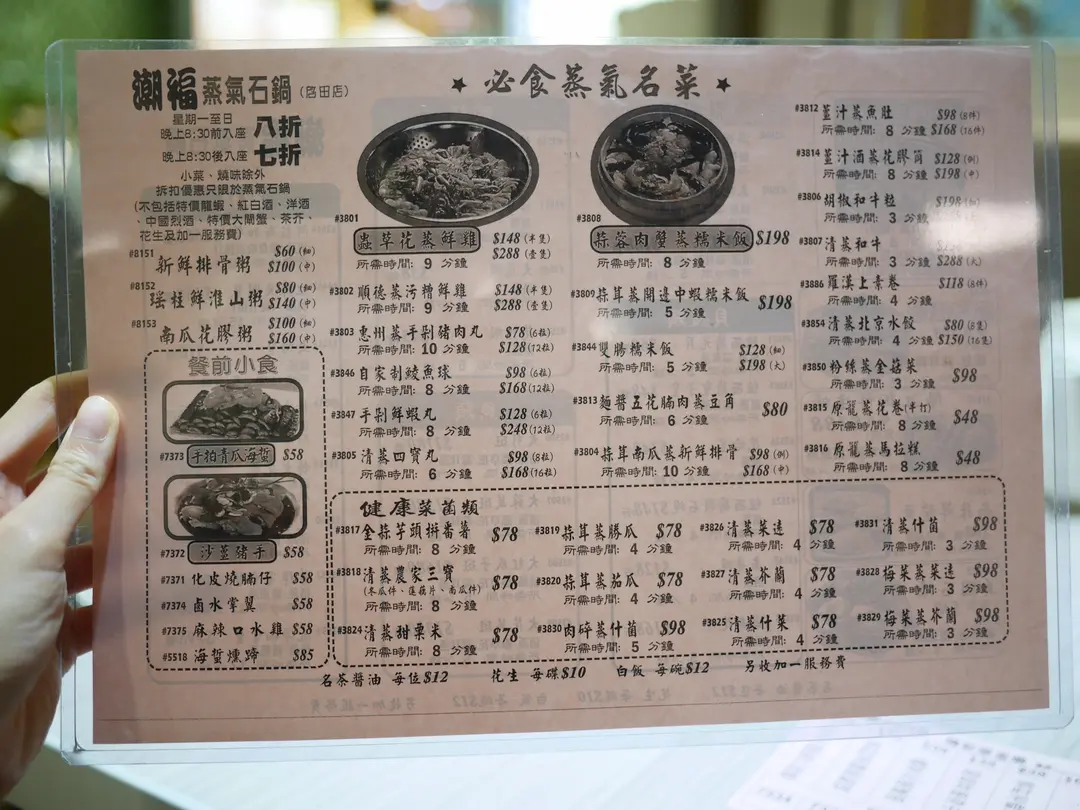 潮福 蒸氣石鍋
星期一至日
晚上8:30前入座 八折
晚上8:30後入座 七折
小菜、燒味除外
折扣優惠只限於蒸氣石鍋
(不包括特價龍蝦、紅白酒、洋酒
、中國烈酒、特價大閘蟹、茶芥、
花生及加一服務費)
#8151 新鮮排骨粥 $60(細)
$100(中)
#8152 瑤柱鮮淮山粥 $80(細)
$140(中)
#8153 南瓜花膠粥 $100(細)
$160(中)
餐前小食
#7373 手拍青瓜海蜇 $58
#7372 沙薑豬手 $58
#7371 化皮燒腩仔 $58
#7374 鹵水掌翼 $58
#7375 麻辣口水雞 $58
#5518 海蜇燻蹄 $85
★ 必食蒸氣名菜 ★
#3801
蟲草花蒸鮮雞 $148(半隻)
$288(壹隻)
所需時間: 9 分鐘
#3802 順德蒸污糟鮮雞 $148(半隻)
所需時間: 9 分鐘 $288(壹隻)
#3803 惠州蒸手剁豬肉丸 $78(6粒)
所需時間: 10 分鐘 $128(12粒)
#3846 自家制鯪魚球 $98(6粒)
所需時間: 8 分鐘 $168(12粒)
#3847 手剁鮮蝦丸 $128(6粒)
所需時間: 8 分鐘 $248(12粒)
#3805 清蒸四寶丸 $98(8粒)
所需時間: 6 分鐘 $168(16粒)
#3808
蒜蓉肉蟹蒸糯米飯 $198
所需時間: 8 分鐘
#3809 蒜茸蒸開邊中蝦糯米飯 $198
所需時間: 5 分鐘
#3844 雙腸糯米飯 $128(細)
所需時間: 5 分鐘 $198(大)
#3813 麵醬五花腩肉蒸豆角 $80
所需時間: 6 分鐘
#3804 蒜茸南瓜蒸新鮮排骨 $98(例)
所需時間: 10 分鐘 $168(中)
#3812 薑汁蒸魚肚 $98(8件)
所需時間: 8 分鐘 $168(16件)
#3814 薑汁酒蒸花膠筒 $128(例)
所需時間: 8 分鐘 $198(中)
#3806 胡椒和牛粒 $198
所需時間: 3
#3807 清蒸和牛
所需時間: 3 分鐘 $288(大)
#3886 羅漢上素卷 $118(8件)
所需時間: 4 分鐘
#3854 清蒸北京水餃 $80(8隻)
所需時間: 4 分鐘 $150(16隻)
#3850 粉絲蒸金菇菜 $98
所需時間: 3 分鐘
#3815 原籠蒸花卷(半打) $48
所需時間: 8 分鐘
#3816 原籠蒸馬拉糕 $48
所需時間: 8 分鐘
健康菜菌類
#3817 全蒜芋頭拼番薯 $78
所需時間: 8 分鐘
#3818 清蒸農家三寶 $78
(冬瓜件、蓮藕片、南瓜件)
所需時間: 8 分鐘
#3824 清蒸甜粟米 $78
所需時間: 8 分鐘
#3819 蒜茸蒸勝瓜 $78
所需時間: 4 分鐘
#3820 蒜茸蒸茄瓜 $78
所需時間: 4 分鐘
#3830 肉碎蒸什菌 $98
所需時間: 5 分鐘
#3826 清蒸菜遠 $78
所需時間: 4 分鐘
#3827 清蒸芥蘭 $78
所需時間: 4 分鐘
#3825 清蒸什菜 $78
所需時間: 4 分鐘
#3831 清蒸什菌 $98
所需時間: 3 分鐘
#3828 梅菜蒸菜遠 $98
所需時間: 3 分鐘
#3829 梅菜蒸芥蘭 $98
所需時間: 3 分鐘
名茶醬油 每位$12 花生 每碟$10 白飯 每碗$12 另收加一服務費